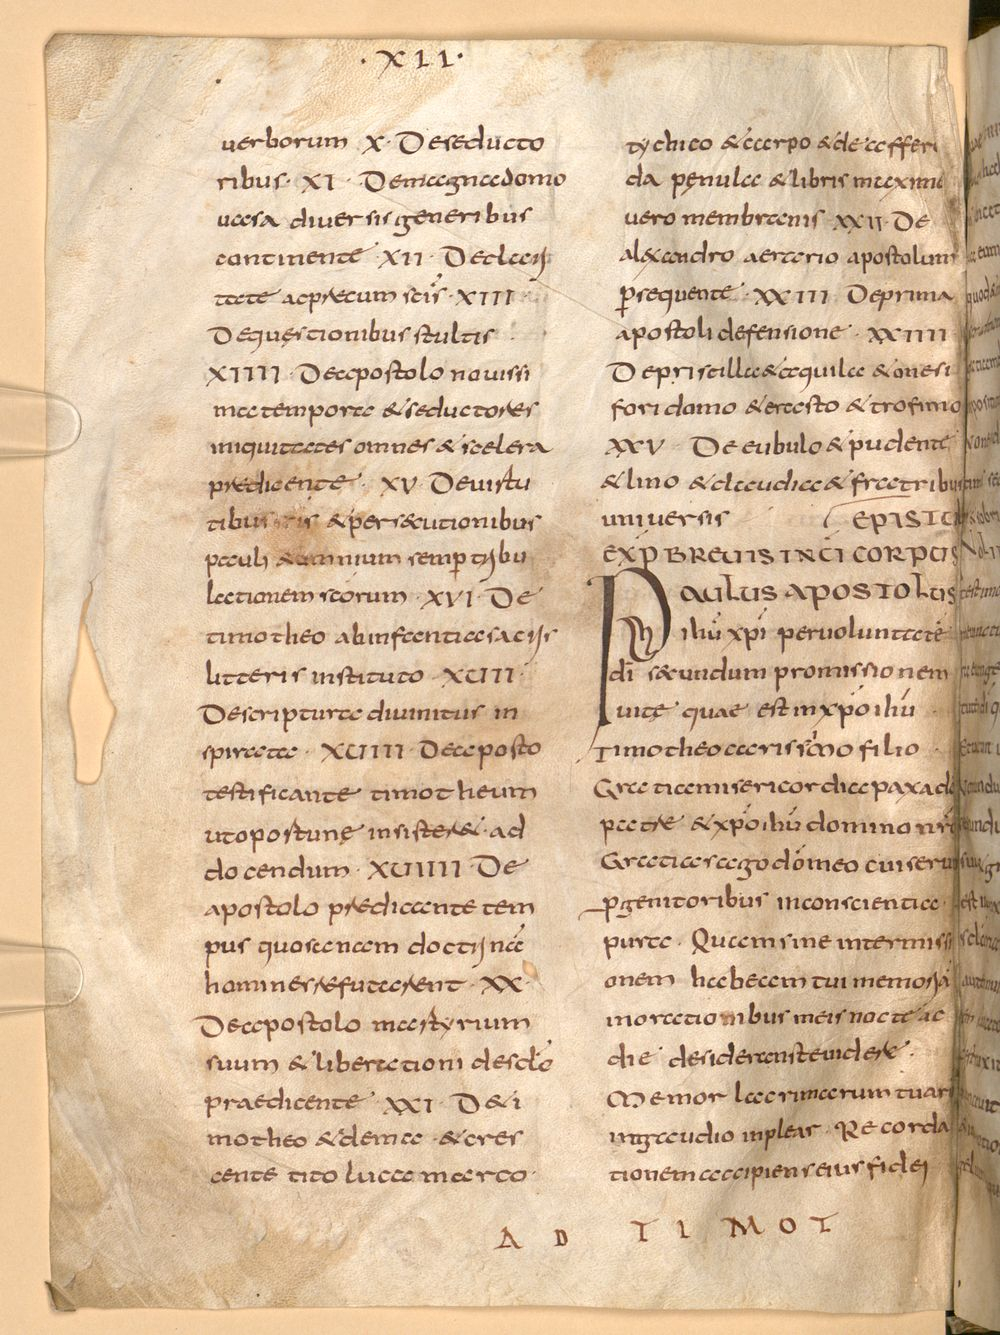 ·XII·
uerborum X· Deseducto
ribus· XI· Demagnadomo
uasa diuersisgeneribus
continente· XII· Declaii
tate acpraecum scis· XIII·
Dequęstionibusstultis·
XIIII· Deapostolo nouissi
matempora &seductores
iniquitates omnes &scelera
praedicente· XV· Deuirtu
tibus &persecutionibus
pauli &omnium semp tribu
lationem scorum· XVI· De
timotheo abinfantiasacris
litteris instituto· XUIII·
Descripturadiuinitus in
spirata· XUIIII· Deaposto
testificante timotheum
utopostunę insistere& ad
docendum· XUIIII· De
apostolo praedicante tem
pus quosanam doctrina
hominesrefutarent· XX·
Deapostolo martyrium
suum &liberationi desde
praedicente· XXI· De&i
motheo &dema· &cres
cente tito luca marco·
tychico &carpo &deafferi
da penula &libris maxime
uero membranis· XXII· De
alexandro aerario apostolum
psequente· XXIII· Deprima
apostoli defensione· XXIIII·
Depriscilla&aquila &onesi
foridomo &erasto &trofimo
XXV· De eubulo &pudente
&lino &claudia &fratribus
uniuersis EPISTO
EXP BREUIS INCI CORPUS
PAULUS APOSTOLUS
ihu xpi peruoluntate
di secundum promissionem
uitę quae estinxpo ihu
Timotheocarissimo filio·
Gratiamisericordiapaxade
patre &xpoihu domino nro
Gratiasagodomeo cuiseru
pgenitoribus inconscientia·
pura· Quamsine intermissi
onem habeam tui memoria
inorationibus meis nocte ac
die desideransteuidere·
Memor lacrimarum tuar
utgaudio inplear· Recorda
tionemaccipienseius fidei
AD TIMOT